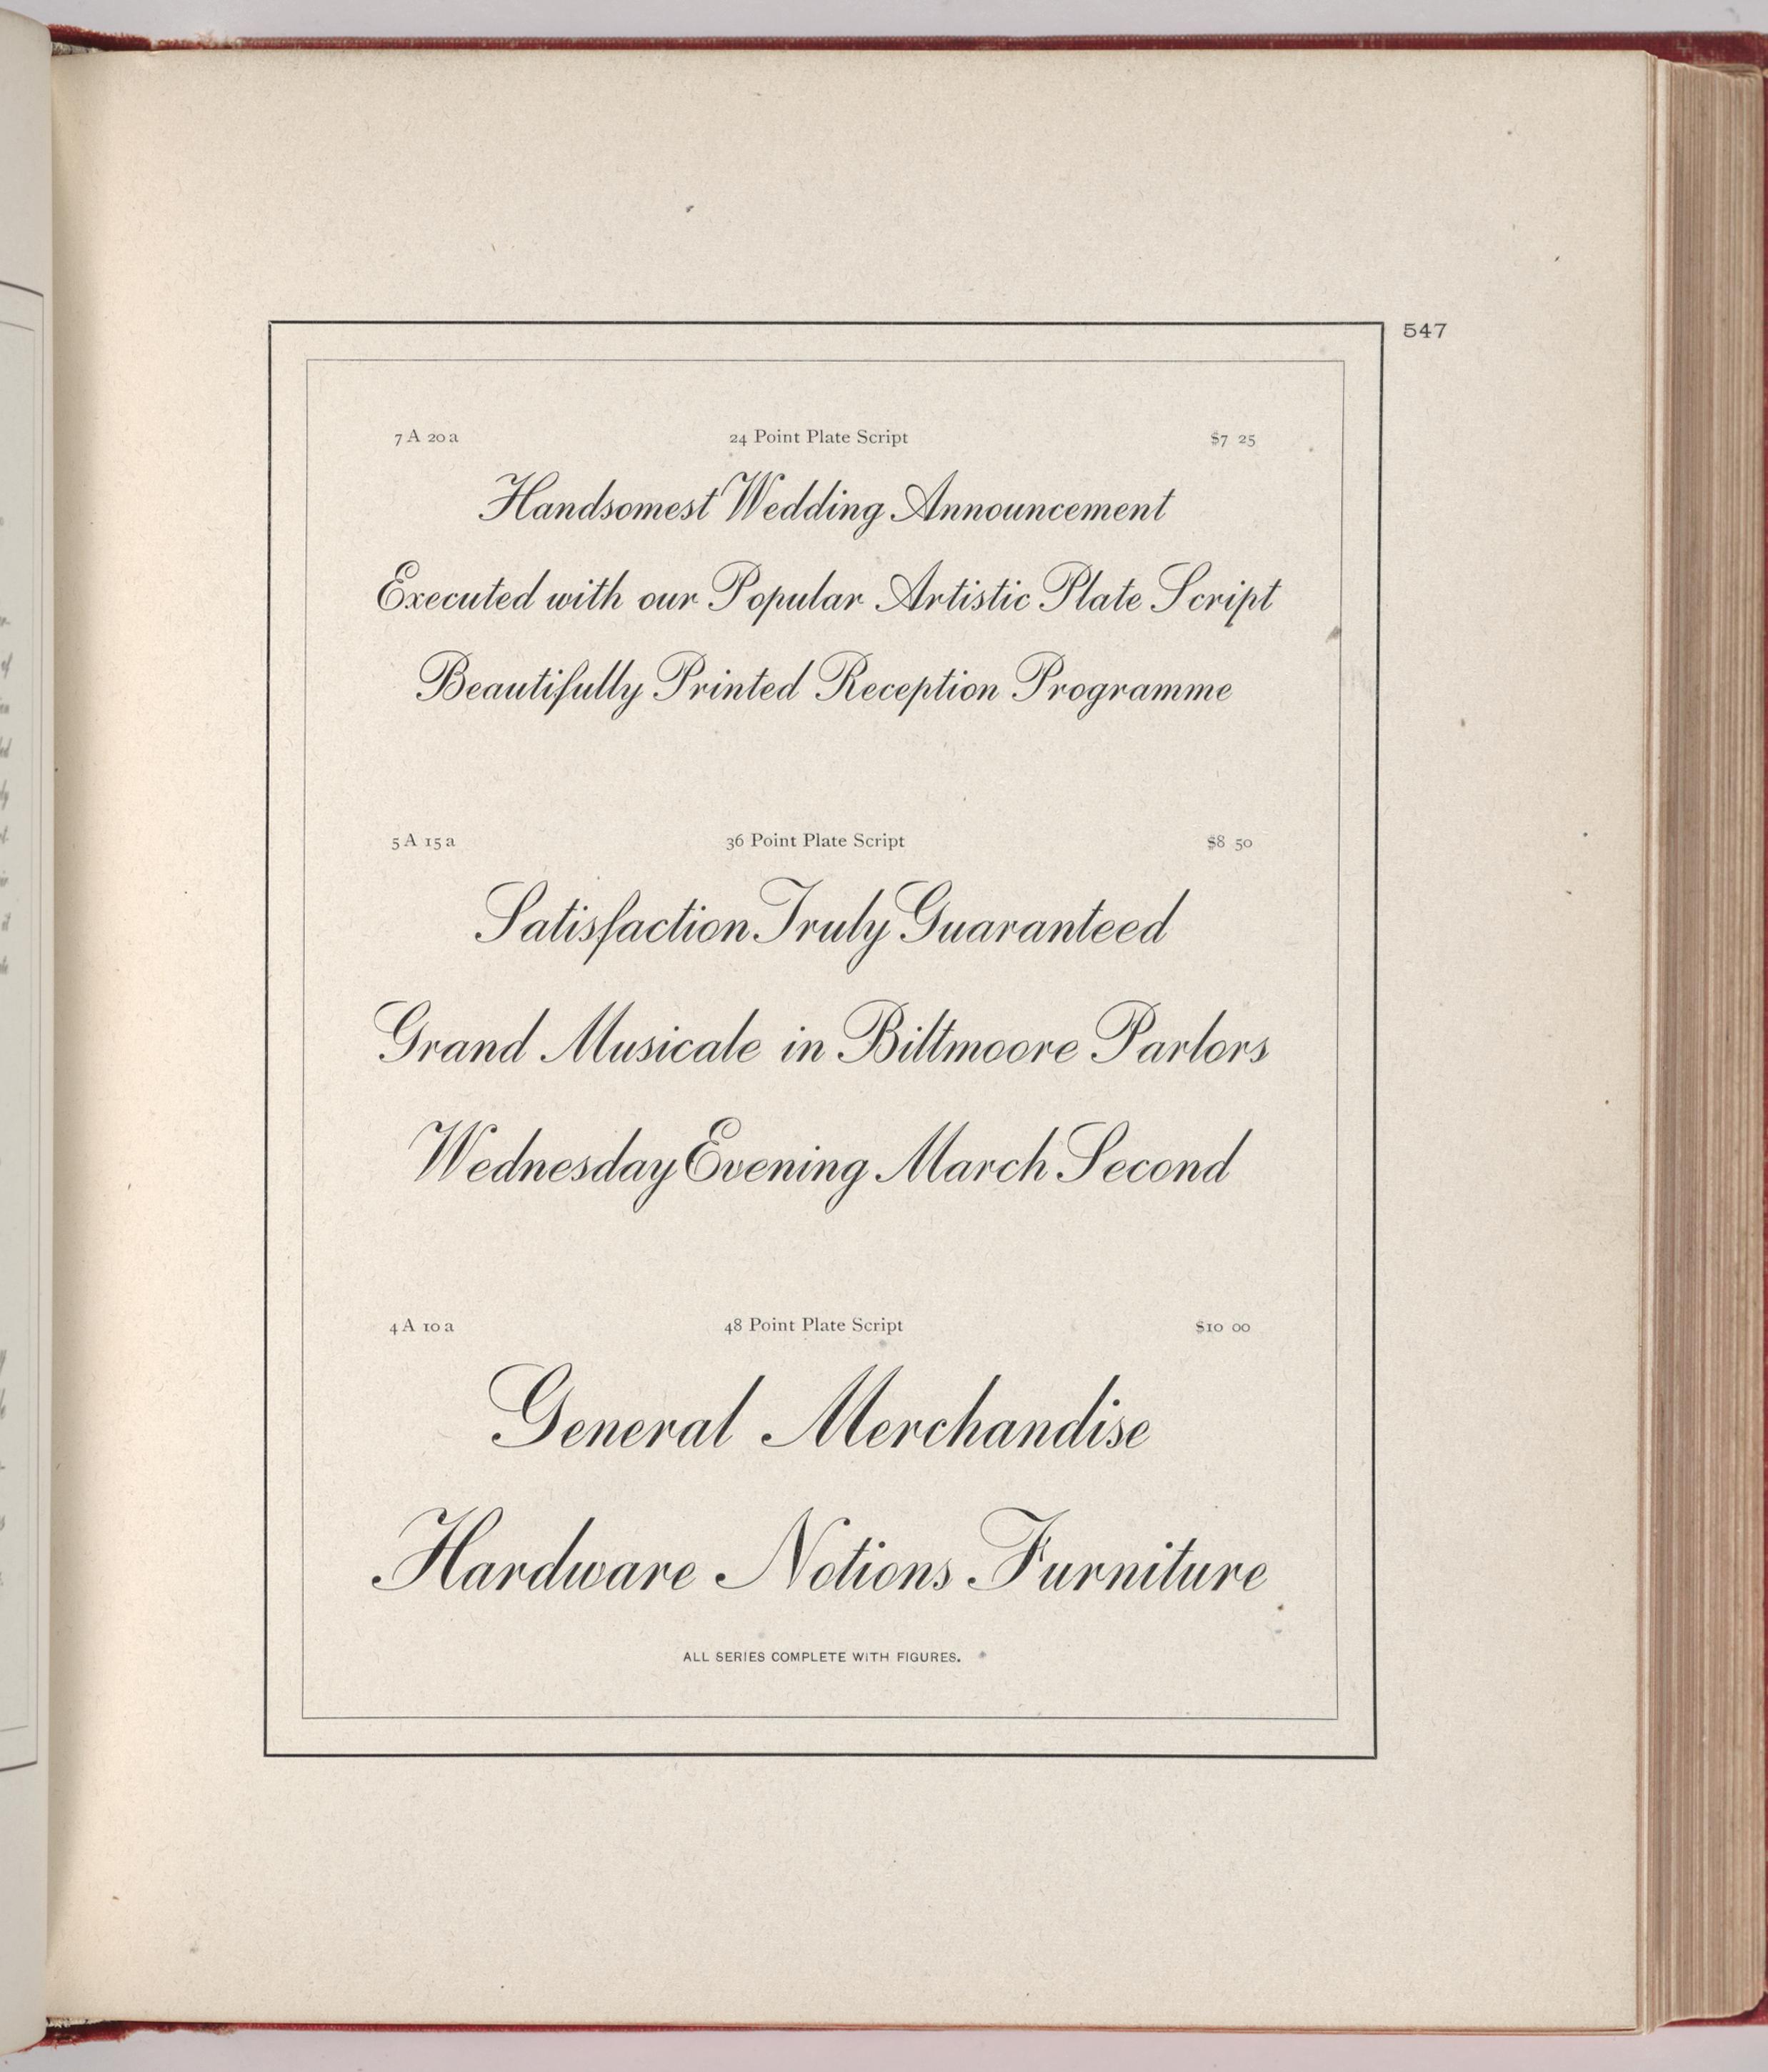 547
7 A 20 a 24 Point Plate Script $7 25
Handsomest Wedding Announcement
Executed with our Popular Artistic Plate Script
Beautifully Printed Reception Programme
5 A 15 a 36 Point Plate Script $8 50
Satisfaction Truly Guaranteed
Grand Musicale in Biltmoore Parlors
Wednesday Evening March Second
4 A 10 a 48 Point Plate Script $10 00
General Merchandise
Hardware Notions Furniture
ALL SERIES COMPLETE WITH FIGURES.